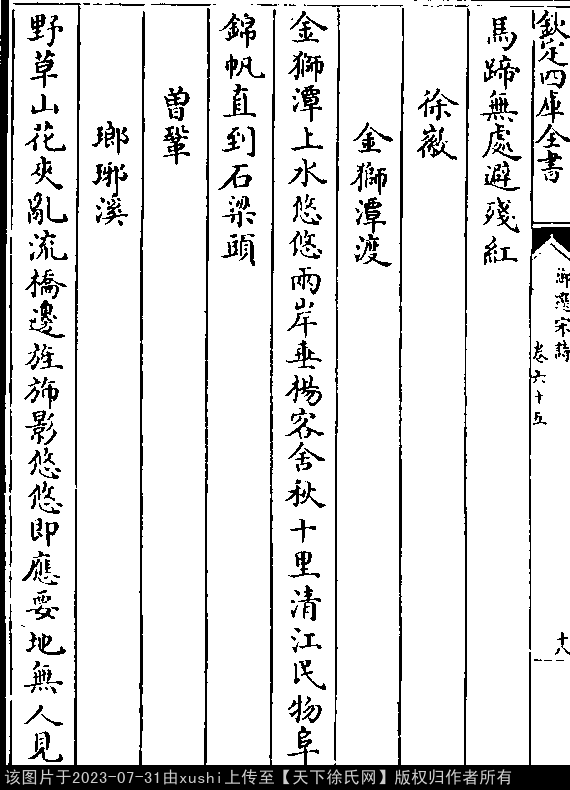 欽定四庫全書
御選宋詩
卷六十五
十八
馬蹄無處避殘紅
徐徽
金獅潭渡
金獅潭上水悠悠兩岸垂楊客舍秋十里清江民物阜
錦帆直到石梁頭
曽鞏
瑯琊溪
野草山花夾亂流橋邊旌斾影悠悠即應要地無人見
该图片于2023-07-31由xushi上传至【天下徐氏网】版权归作者所有